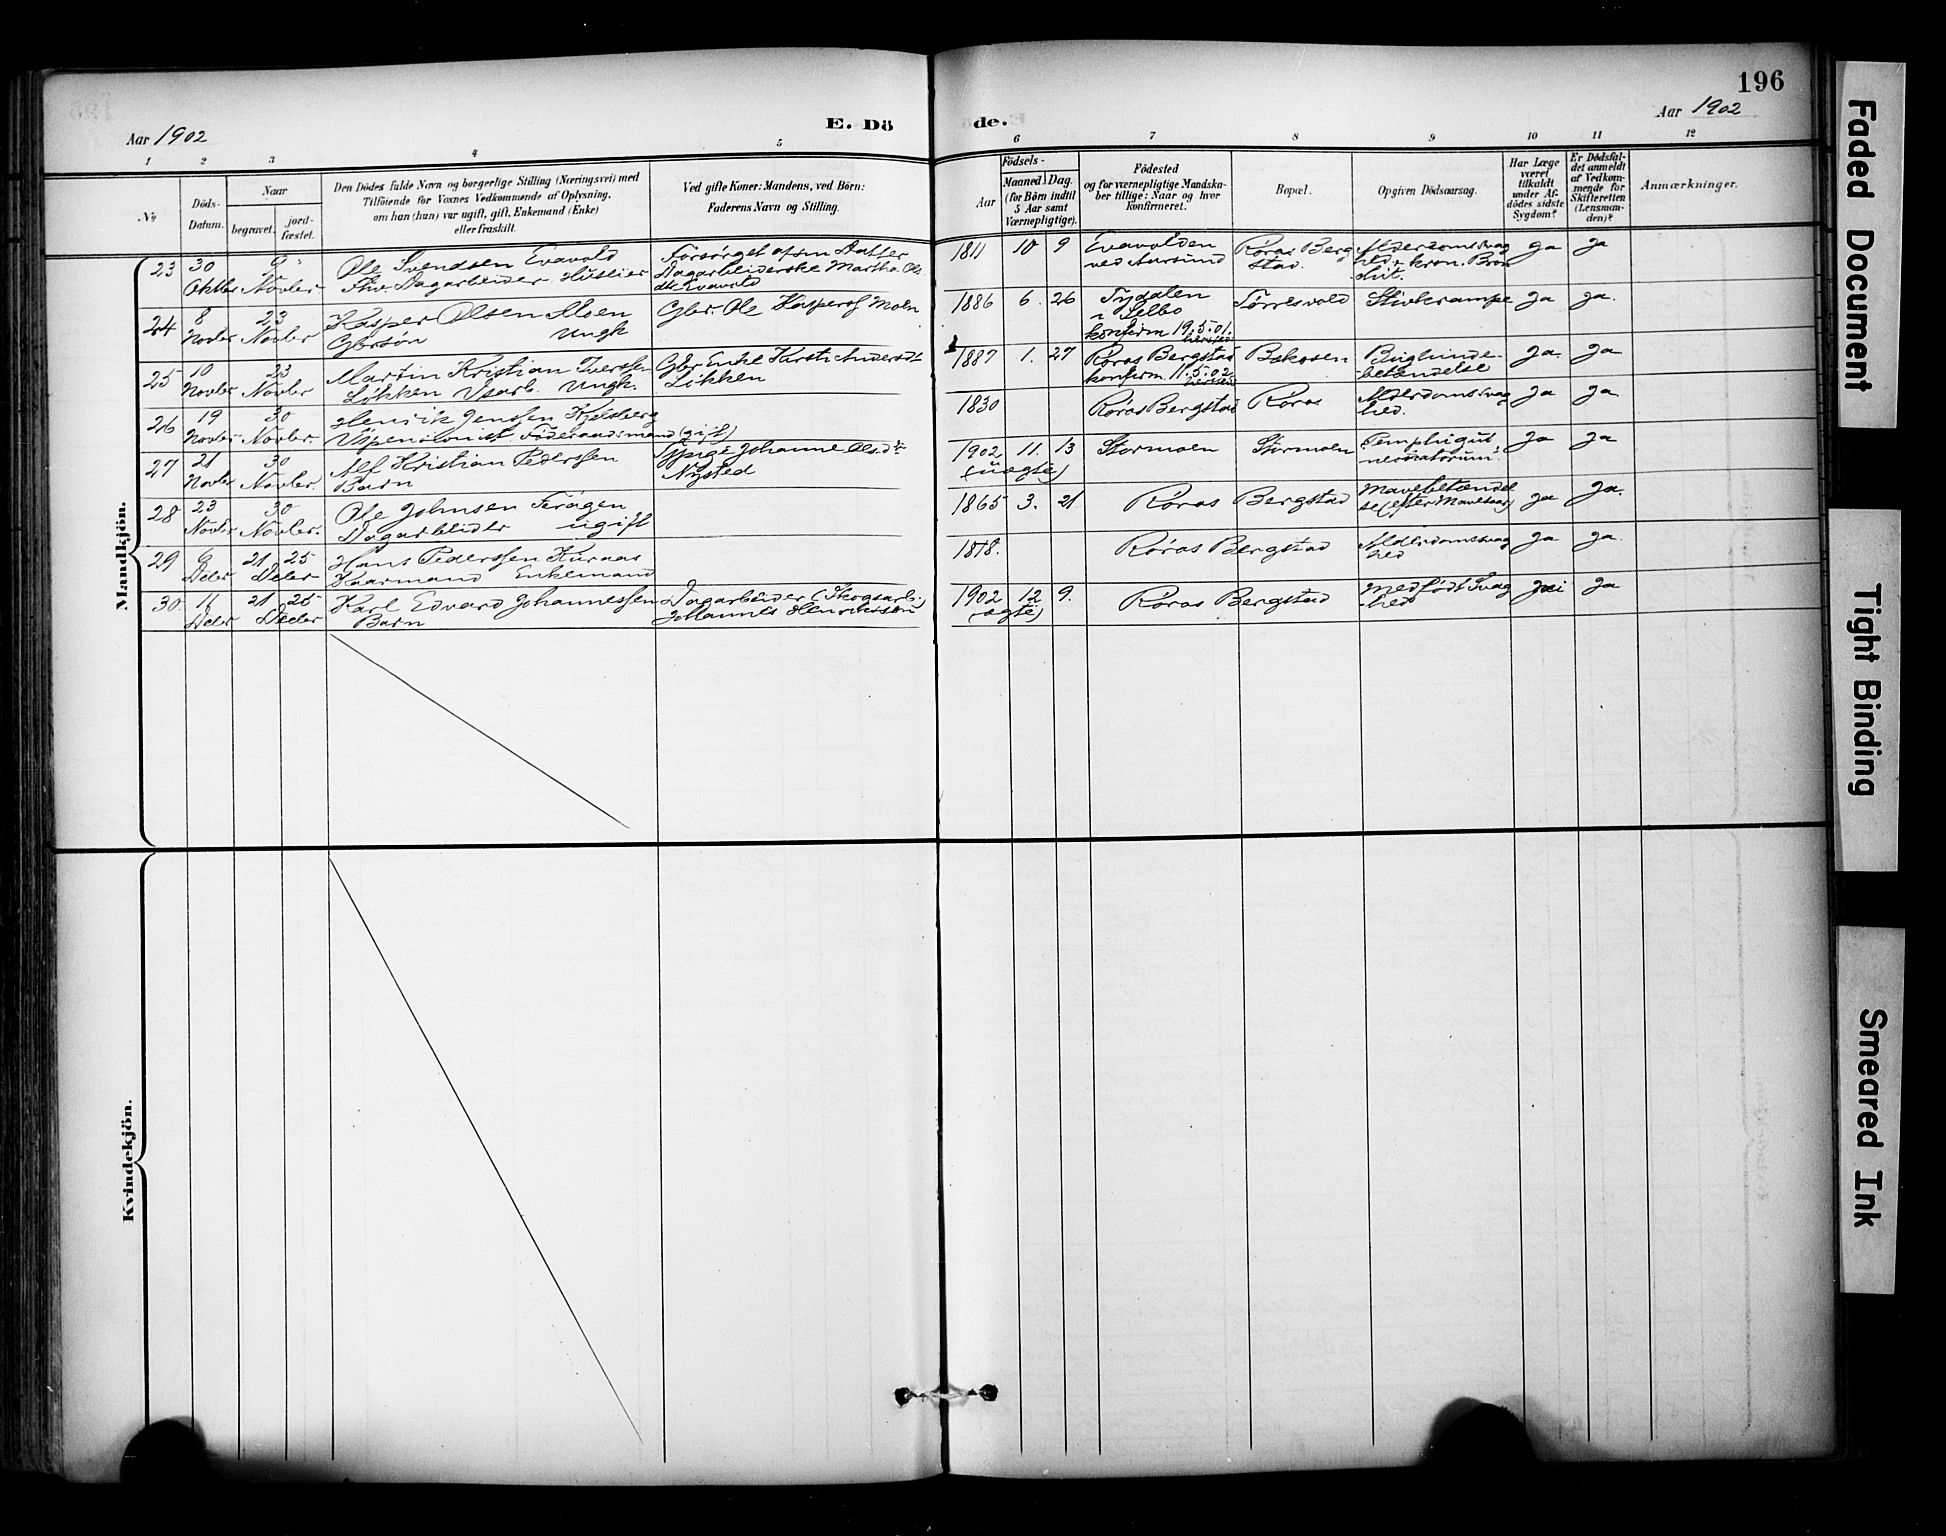 196
Aar 1902
E. Dö
de.
Aar 1902
1 2 3 4 5 6 7 8 9 10 11 12
№
Döds-
Datum.
Naar
begravet.
jord-
fæstet.
Den Dödes fulde Navn og borgerlige Stilling (Næringsvei) med
Tilföiende for Voxnes Vedkommende af Oplysning,
om han (hun) var ugift, gift, Enkemand (Enke)
eller fraskilt.
Ved gifte Koner: Mandens, ved Börn:
Faderens Navn og Stilling.
Födsels-
Aar
Maaned
Dag.
(for Börn indtil
5 Aar samt
Værnepligtige).
Födested
og for værnepligtige Mandska-
ber tillige: Naar og hvor
konfirmeret.
Bopæl.
Opgiven Dödsaarsag.
Har Læge
været
tilkaldt
under Af-
dödes sidste
Sygdom?
Er Dödsfal-
det anmeldt
af Vedkom-
mende for
Skifteretten
(Lensman-
den)?
Anmærkninger.
Mandkjön.
23 30 9 Ole Svendsen Evavold Forsørget af sin Datter 1811 10 9 Evavolden Røros Berg Alderdomssvag ja ja
Oktbr Novbr Dagarbeider Dagarbeiderske Martha Ols ved Aursund stad. hed kron. Bron
dtr Evavold chit.
24 8 23 Kasper Olsen Moen Gbr. Ole Kaspers Moen 1886 6. 26 Tydalen Tørresvold Stivkrampe ja ja.
Novbr Novbr Gbrsøn Ungk i Selbo
konfirm 19.5.01.
25 10 23 Martin Kristian Iverssen Gbr. Enke Kirsti Andersdt 1887 1. 27 Røros Bergstad Bakosen Bughinde- ja. ja
Novbr Novbr Løkken Ungk. Løkken konfirm 11.5.02 betændelse
26 19 30 Henrik Jenssen Kjelsberg 1830 Røros Bergstad Røros Alderdomssvag ja ja
Novbr Novbr. Føderaadsmand (gift) hed.
27 21 30 Alf Kristian Pederssen Pige Johanne Olsdtr 1902 11. 13 Stormoen Stormoen ja ja
Novbr Novbr. Barn Nysted (uægte) neonatorum
28 23 30 Ole Johnsen Feragen 1865 3. 21 Røros Bergstad Mavebetændel ja ja.
Novbr Novbr. Dagarbeider ugift se (efter Mavesaar)
29 9 21 25 Hans Pederssen Kuraas 1818. Røros Bergstad Alderdomssvag ja ja.
Decbr Decbr Kaarmand Enkemand hed
30. 21 25 Karl Edvard Johannessen Dagarbeider (Skogsarb.) 1902 12 9. Røros Bergstad Medfødt Svag nei ja
Decbr Decbr Barn Johannes Henriksson (ægte) hed
Kvindekjön.
Faded Document
Tight Binding
Smeared Ink